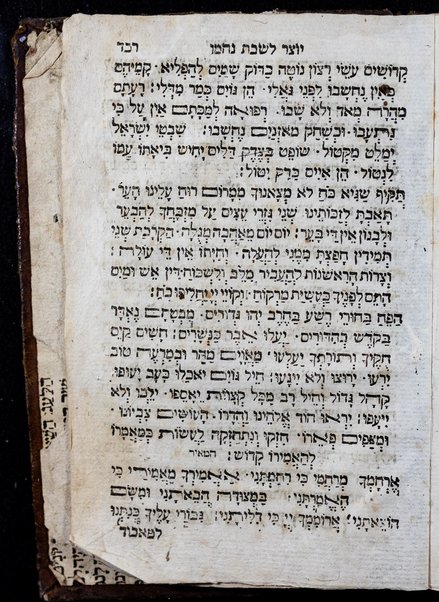 יוצר לשבת נחמו רכד
קדושים עשי רצון נוטה כדוק שמים להפליא · קמיהם
כאין נחשבו לפני גאלי · הן גוים כמר מדלי: רעתם
מהרה מאד ולא שבו · רפואה למכתם אין על כי
נתעבו · וכשחק מאזנים נחשבו: שבטי ישראל
ימלט מקטול · שופט בצדק דלים יחיש ביאתו עמו
לנטול · הן איים כדק יטול:
תקיף שגיא כח לא מצאנוך ממרום רוח עלינו הערו ·
תאבת לזכותינו שני גזרי עצים על מזבחך להבער ·
ולבנון אין די בער: יום יום מאהבה מגלה · הקרבת שני
תמידין חפצת ממני להעלה · וחיתו אין די עולה:
וצרות הראשונות להעביר מלב ולשכוח · דין אש ומים
התם לפניך בעשית מרקוח · וקויי יי יחליפו כח:
הפח בחורי רשע בחרב יהו גדורים · מבטחם נאדר
בקדש בהדורים · יעלו אבר כנשרים: חשים קים
חקיך ותורתך יעלעו · מאוים מהר ובמרעה טוב
ירעו · ירוצו ולא ייגעו: חיל גוים יאכלו כעב יעופו ·
קהל גדול וחיל רב מכל קצוות יאספו · ילכו ולא
ייעפו: יראו הוד אלהינו והדרו · העושים צביונו
ומצפים פארו · חזקו ונתחזקה לעשות כמאמרו
להאמירו קדוש: המאיר
ארחמך מרחמי כי רחמתני · אאמירך מאמירי כי
האמרתני · במצודה הבאתני ומשם
הוצאתני: ארוממך יי כי דליתני: גבורי עליך בגתנו
למאבוד